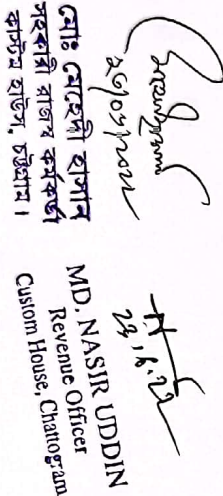 মোঃ মেহেদী হাসান
সহকারী রাজস্ব কর্মকর্তা
কাস্টম হাউস, চট্টগ্রাম।
23.6.22
MD. NASIR UDDIN
Revenue Officer
Custom House, Chattogram